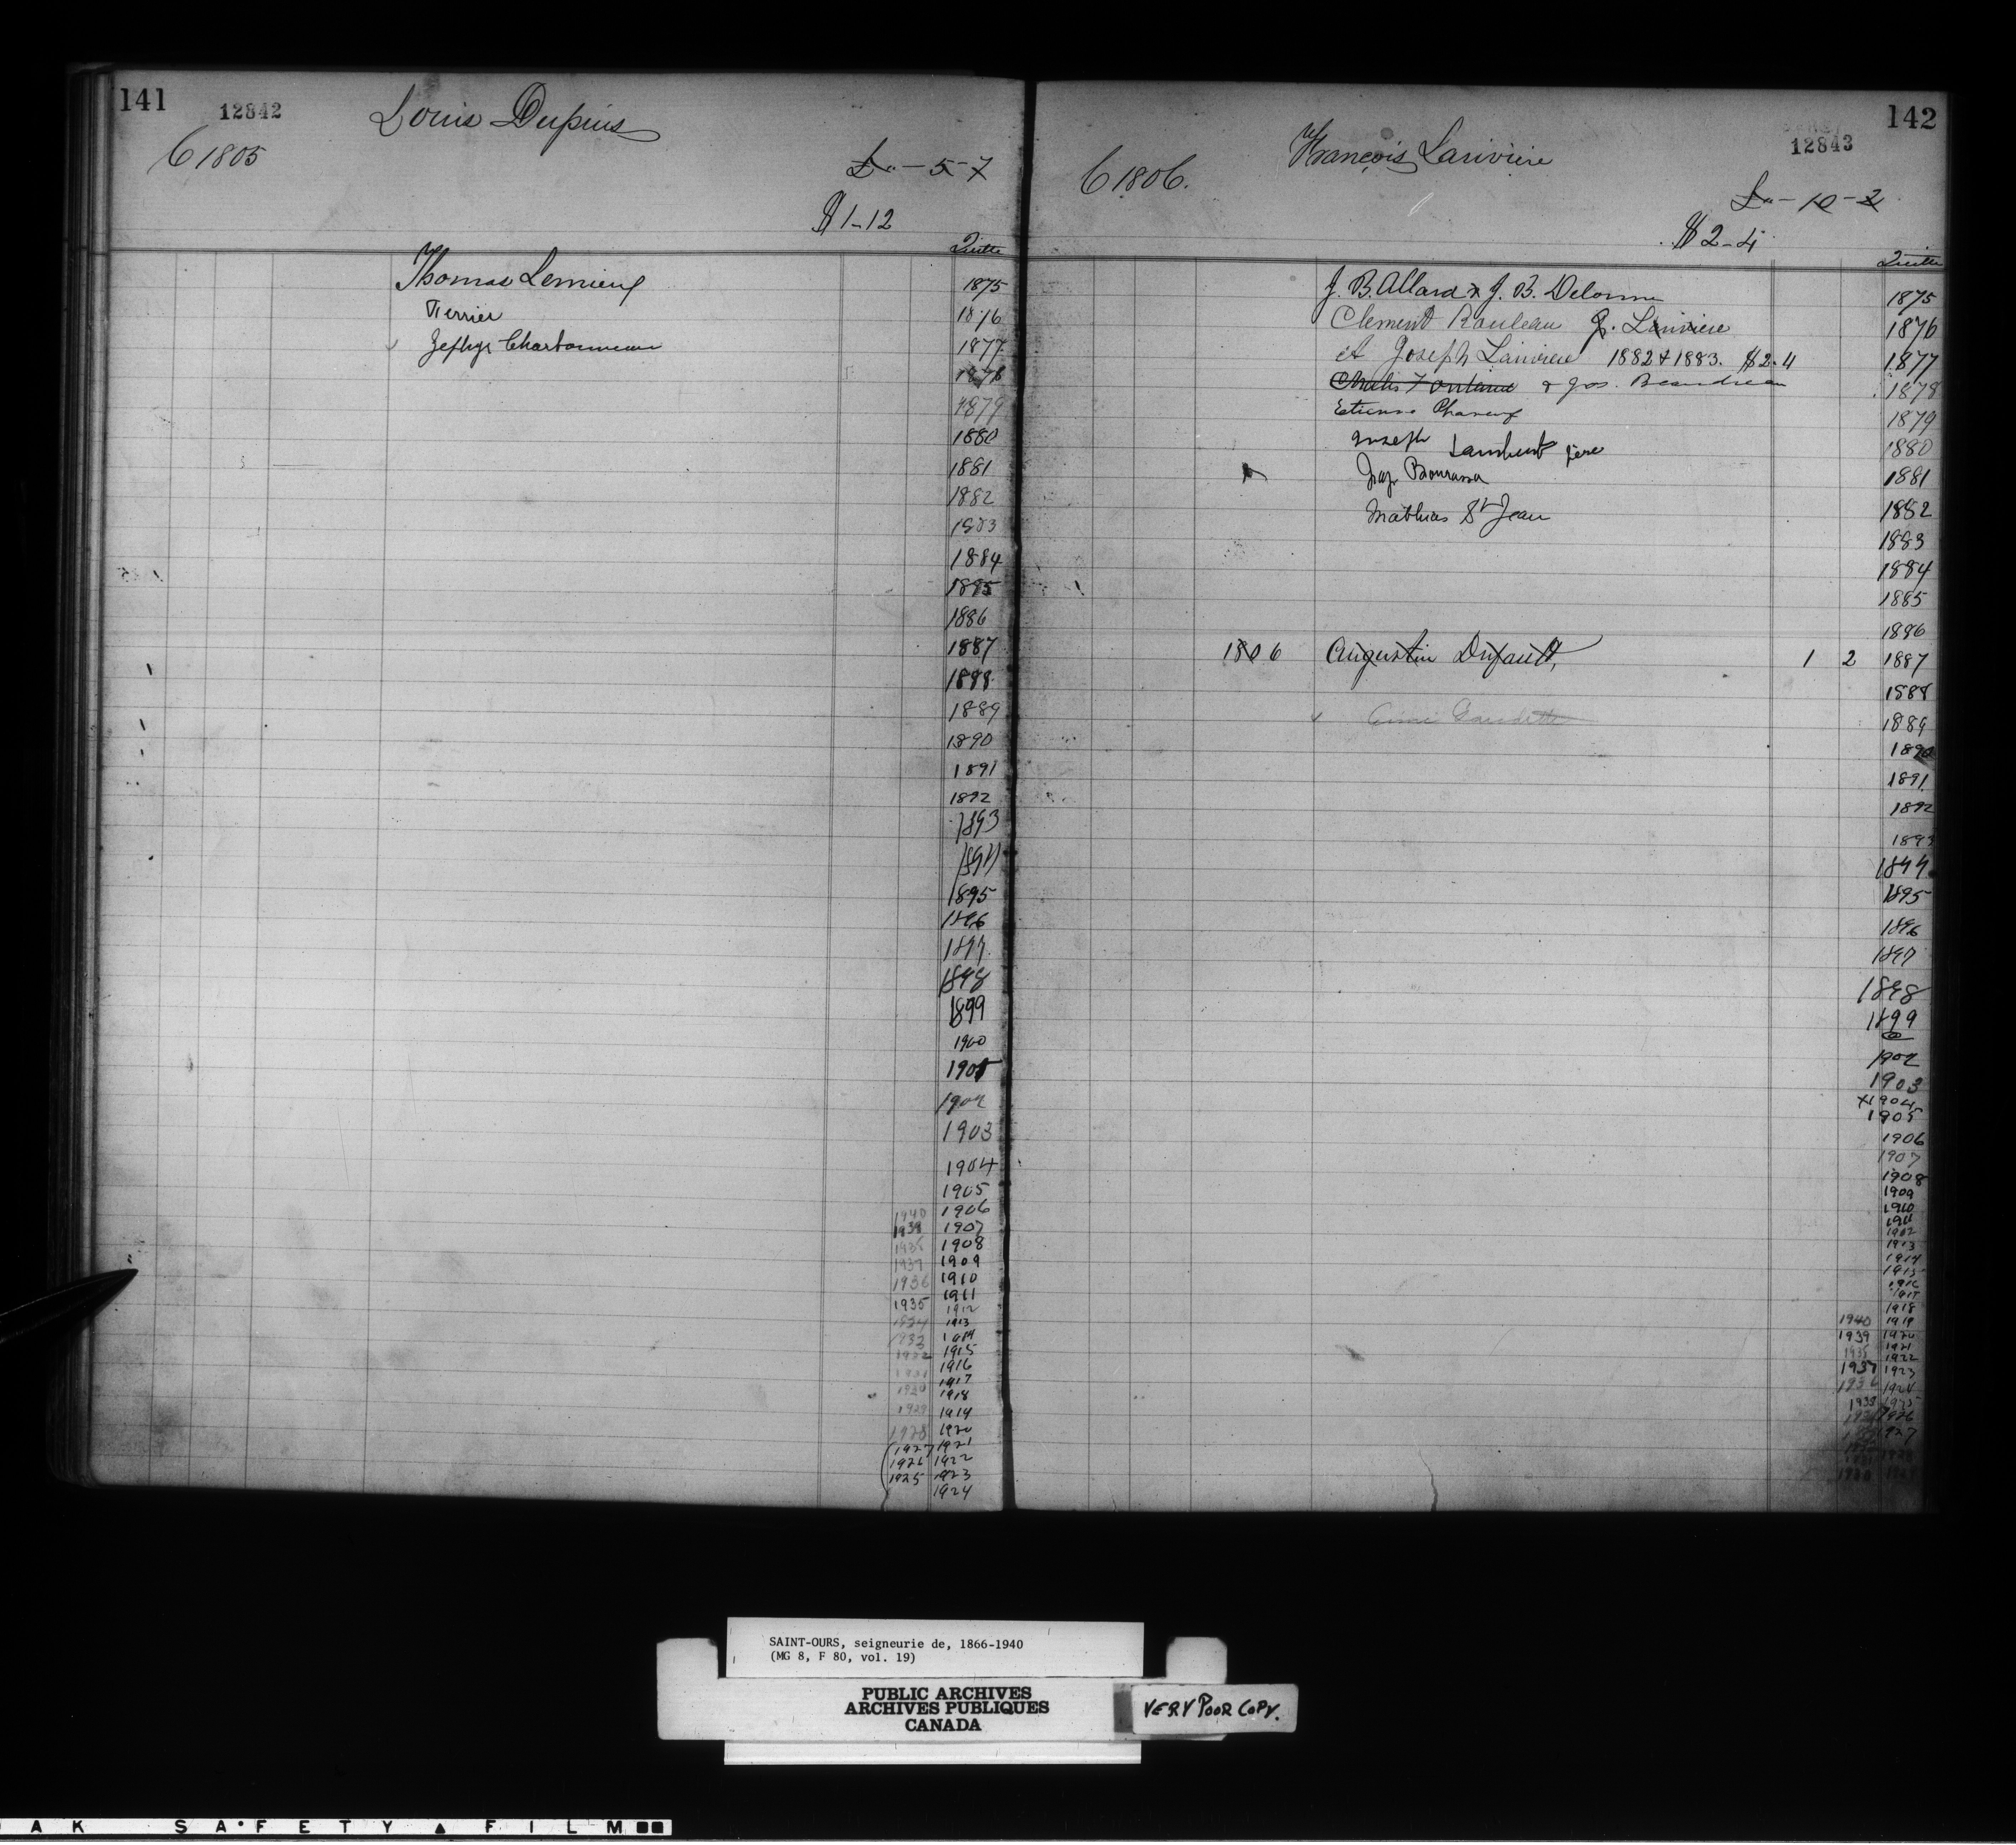 141
12842
Louis Dupuis
C 1805
£ " - 5 - 7
$ 1-12
Quitte
Thomas Lemieux
Terrier
Zephyr Charbonneau
1875
1876
1877
1878
1879
1880
1881
1882
1883
1884
1885
1886
1887
1888
1889
1890
1891
1892
1893
1894
1895
1896
1897
1898
1899
1900
1901
1902
1903
1904
1905
1940 1906
1939 1907
1938 1908
1937 1909
1936 1910
1935 1911
1934 1912
1933 1913
1932 1914
1931 1915
1930 1916
1917
1918
1929 1919
1928 1920
(1927 1921
1926 1922
1925 1923
1924
142
12843
François Lariviere
C 1806.
£ " - 10 - 2
$ 2-4
Quitte
J. B. Allard & J. B. Delorme
Clement Rouleau J. Lariviere
et Joseph Lariviere 1882 & 1883. $2-4
Charles Fontaine & Jos. Beaudreau
Etienne
Joseph Lambert père
Bourassa
Mathias St Jean
1806 Augustin Dufault, 1 2
Gaudette
1875
1876
1877
1878
1879
1880
1881
1882
1883
1884
1885
1886
1887
1888
1889
1890
1891
1892
1893
1894
1895
1896
1897
1898
1899
1902
1903
1904
1905
1906
1907
1908
1909
1910
1911
1912
1913
1914
1915
1916
1917
1918
1940 1919
1939 1920
1938 1921
1922
1937 1923
1936 1924
1935 1925
1926
1927
SAINT-OURS, seigneurie de, 1866-1940
(MG 8, F 80, vol. 19)
PUBLIC ARCHIVES
ARCHIVES PUBLIQUES
CANADA
VERY POOR COPY.
AK SAFETY FILM